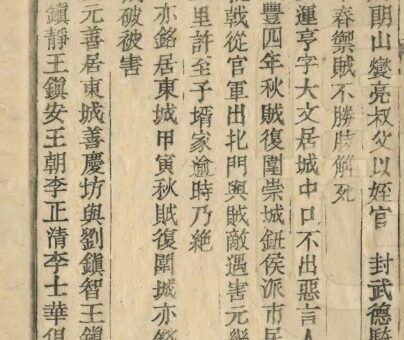 朗山燮亮叔父以姪官　封武德騎
春禦賊不勝肢解死
運亨字大文居城中口不出惡言人
豐四年秋賊復圍崇城鈺侯派市居
戰從官軍出北門與賊敵遇害元幾
里許至子壻家逾時乃絶
亦銘居東城甲寅秋賊復圍城亦銘
破被害
元善居東城善慶坊與劉鎮智王鎮
鎮靜王鎮安王朝李正清李士華俱